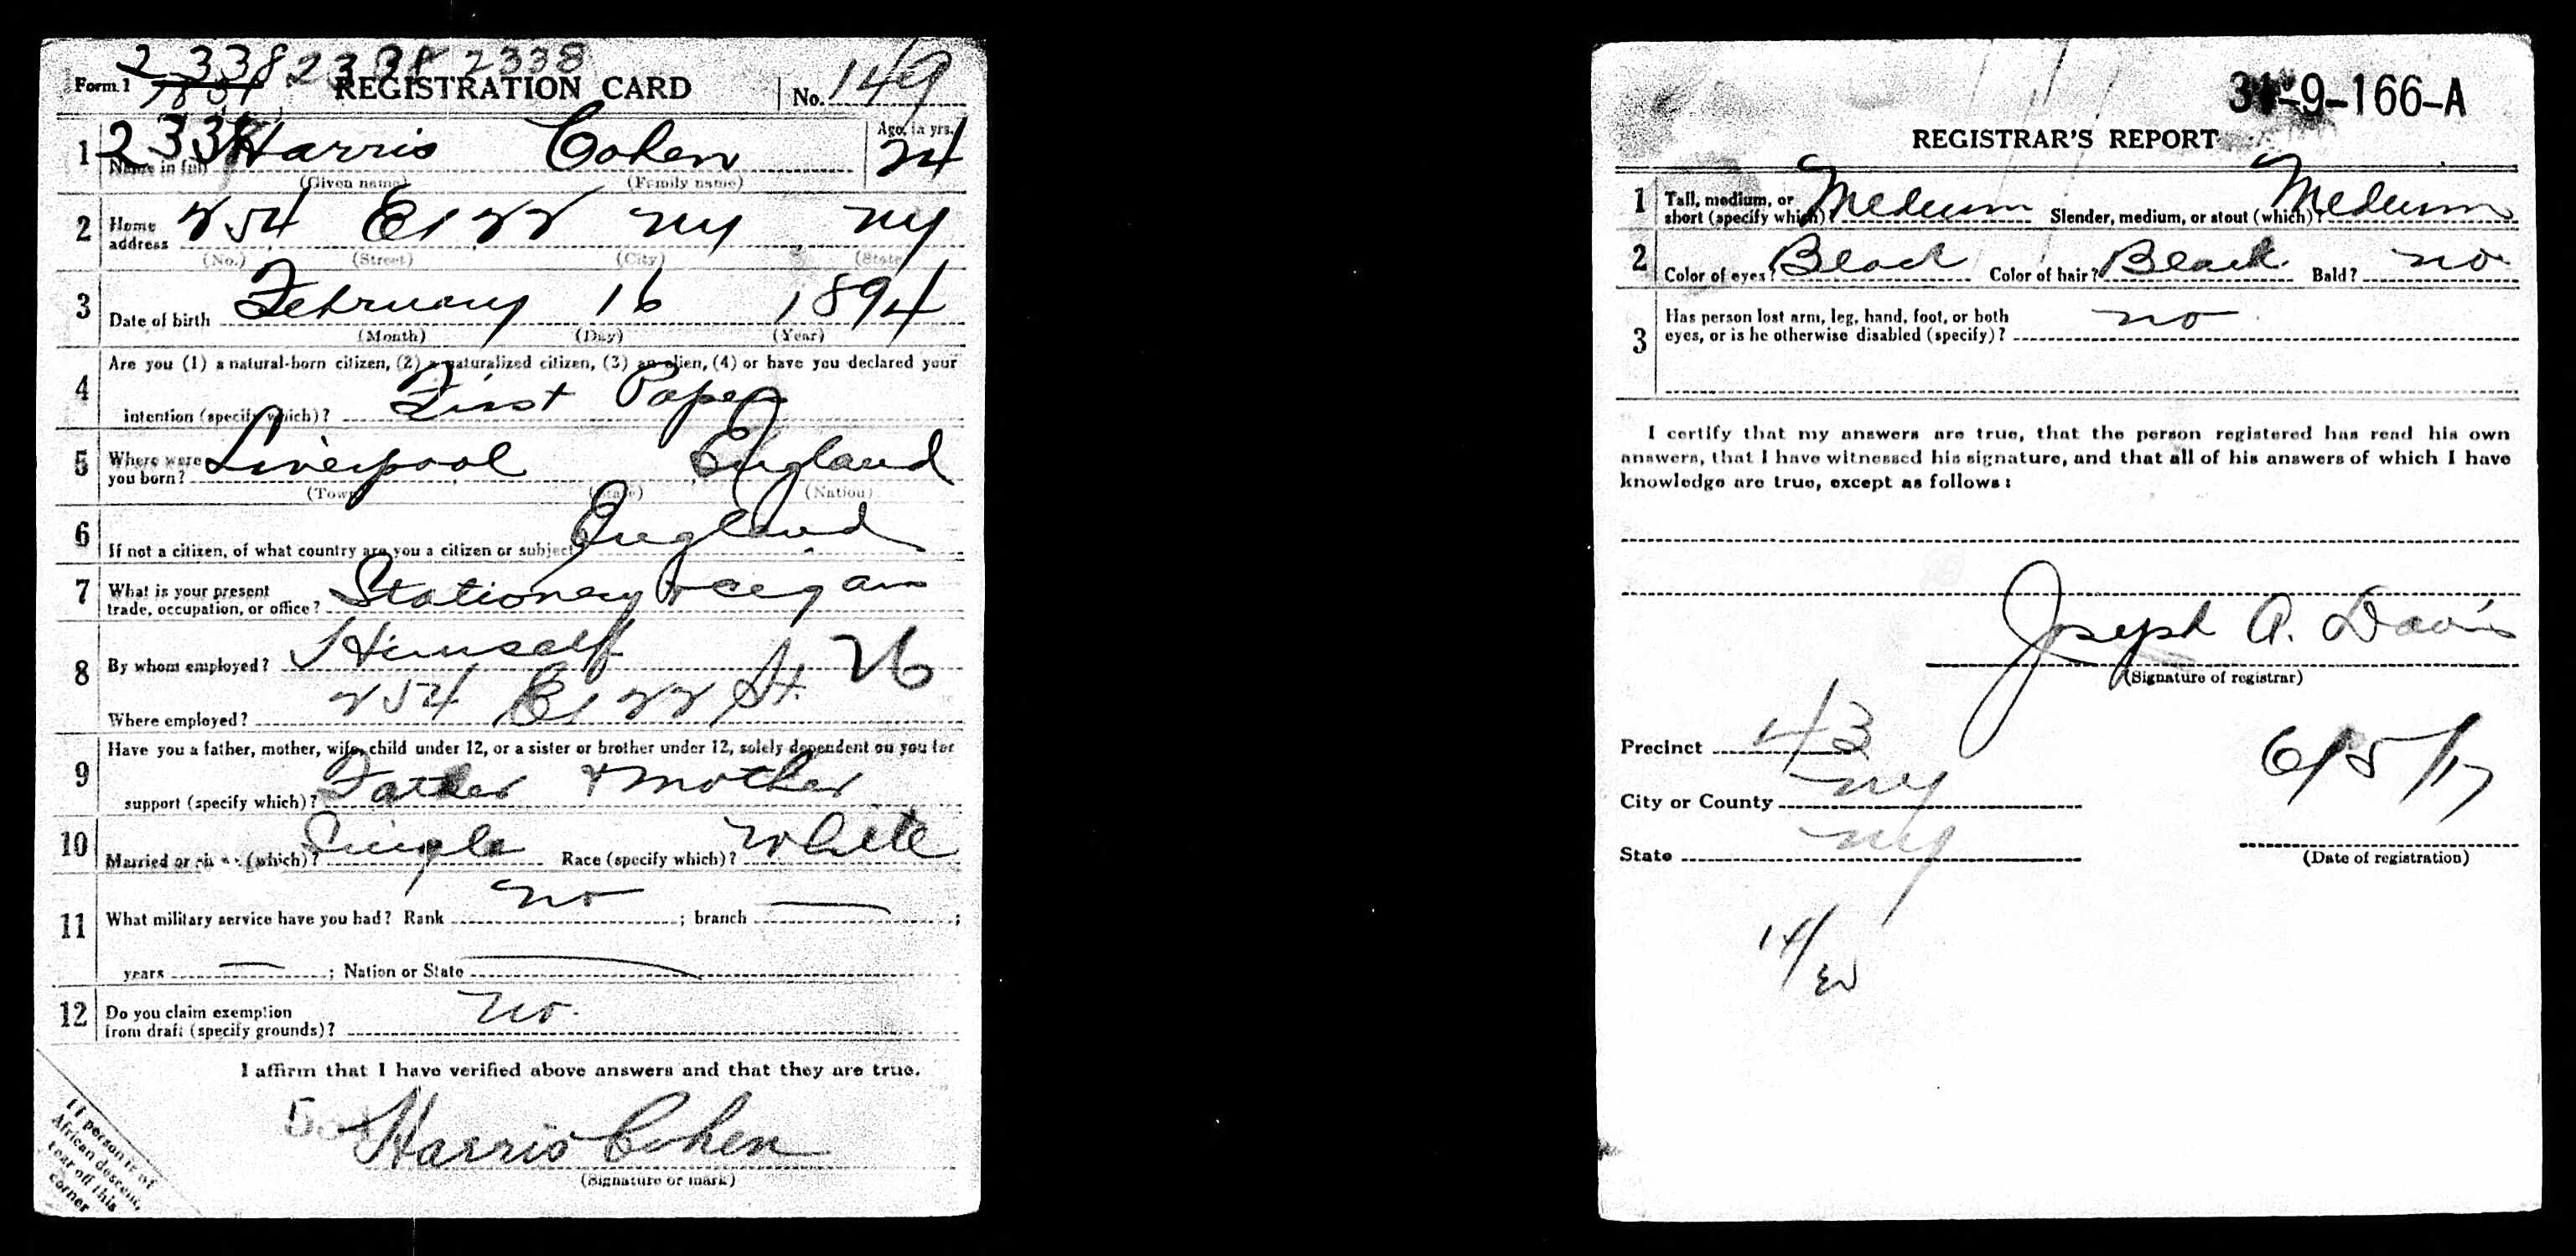 2338 2338 2338
Form 1 REGISTRATION CARD No. 149
2338
1 Name in full Harris Cohen Age, in yrs. 24
(Given name) (Family name)
2 Home address 254 E 122 NY NY
(No.) (Street) (City) (State)
3 Date of birth February 16 1894
(Month) (Day) (Year)
4 Are you (1) a natural-born citizen, (2) a naturalized citizen, (3) an alien, (4) or have you declared your
intention (specify which)? First Paper
5 Where were you born? Liverpool England
(Town) (State) (Nation)
6 If not a citizen, of what country are you a citizen or subject England
7 What is your present trade, occupation, or office? Stationery + cegars
8 By whom employed? Himself 26
Where employed? 254 E 122 St.
9 Have you a father, mother, wife, child under 12, or a sister or brother under 12, solely dependent on you for
support (specify which)? Father + mother
10 Married or single (which)? Single Race (specify which)? White
11 What military service have you had? Rank no ; branch — ;
years — ; Nation or State —
12 Do you claim exemption from draft (specify grounds)? no.
I affirm that I have verified above answers and that they are true.
Harris Cohen
(Signature or mark)
If person is of
African descent,
tear off this
corner
31-9-166-A
REGISTRAR'S REPORT
1 Tall, medium, or short (specify which)? Medium Slender, medium, or stout (which)? Medium
2 Color of eyes? Black Color of hair? Black Bald? no
3 Has person lost arm, leg, hand, foot, or both
eyes, or is he otherwise disabled (specify)? no
I certify that my answers are true, that the person registered has read his own
answers, that I have witnessed his signature, and that all of his answers of which I have
knowledge are true, except as follows:
Joseph A. Davis
(Signature of registrar)
Precinct 43
City or County NY 6/5/17
State NY
(Date of registration)